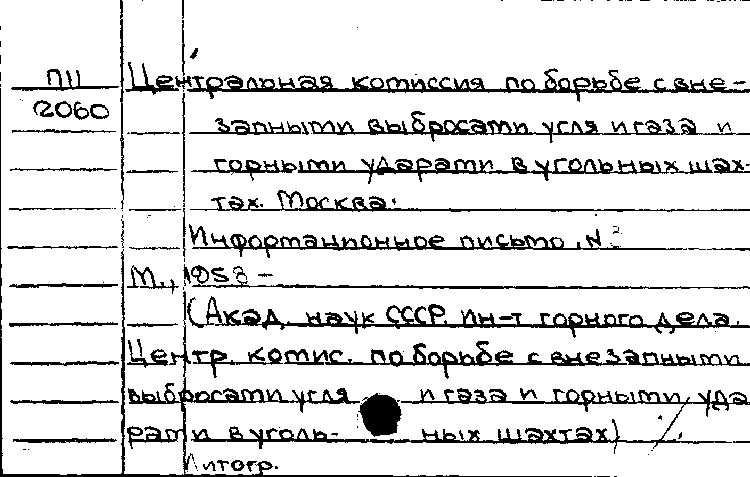 П11 Центральная комиссия по борьбе с вне-
2060 запными выбросами угля и газа и
горными ударами в угольных шах-
тах. Москва.
Информационное письмо, N
М., 1958 -
(Акад. наук СССР. Ин-т горного дела.
Центр. комис. по борьбе с внезапными
выбросами угля и газа и горными уда
рами в уголь- ных шахтах)
Литогр.